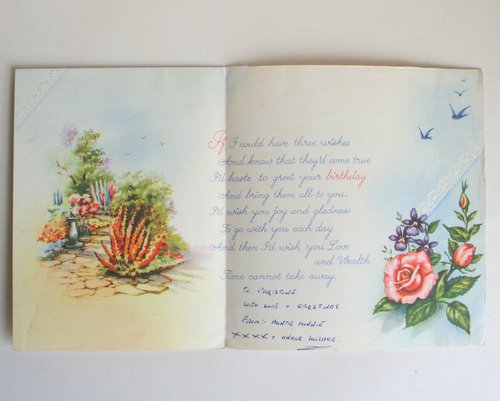 If I could have three wishes
And know that they'd come true
I'd haste to greet your birthday
And bring them all to you,
I'd wish you joy and gladness
To go with you each day
And then I'd wish you Love
and Wealth
Time cannot take away.
TO CHRISTINE.
WITH LOVE + GREETINGS
FROM:- AUNTIE MINNIE
XXXX + UNCLE